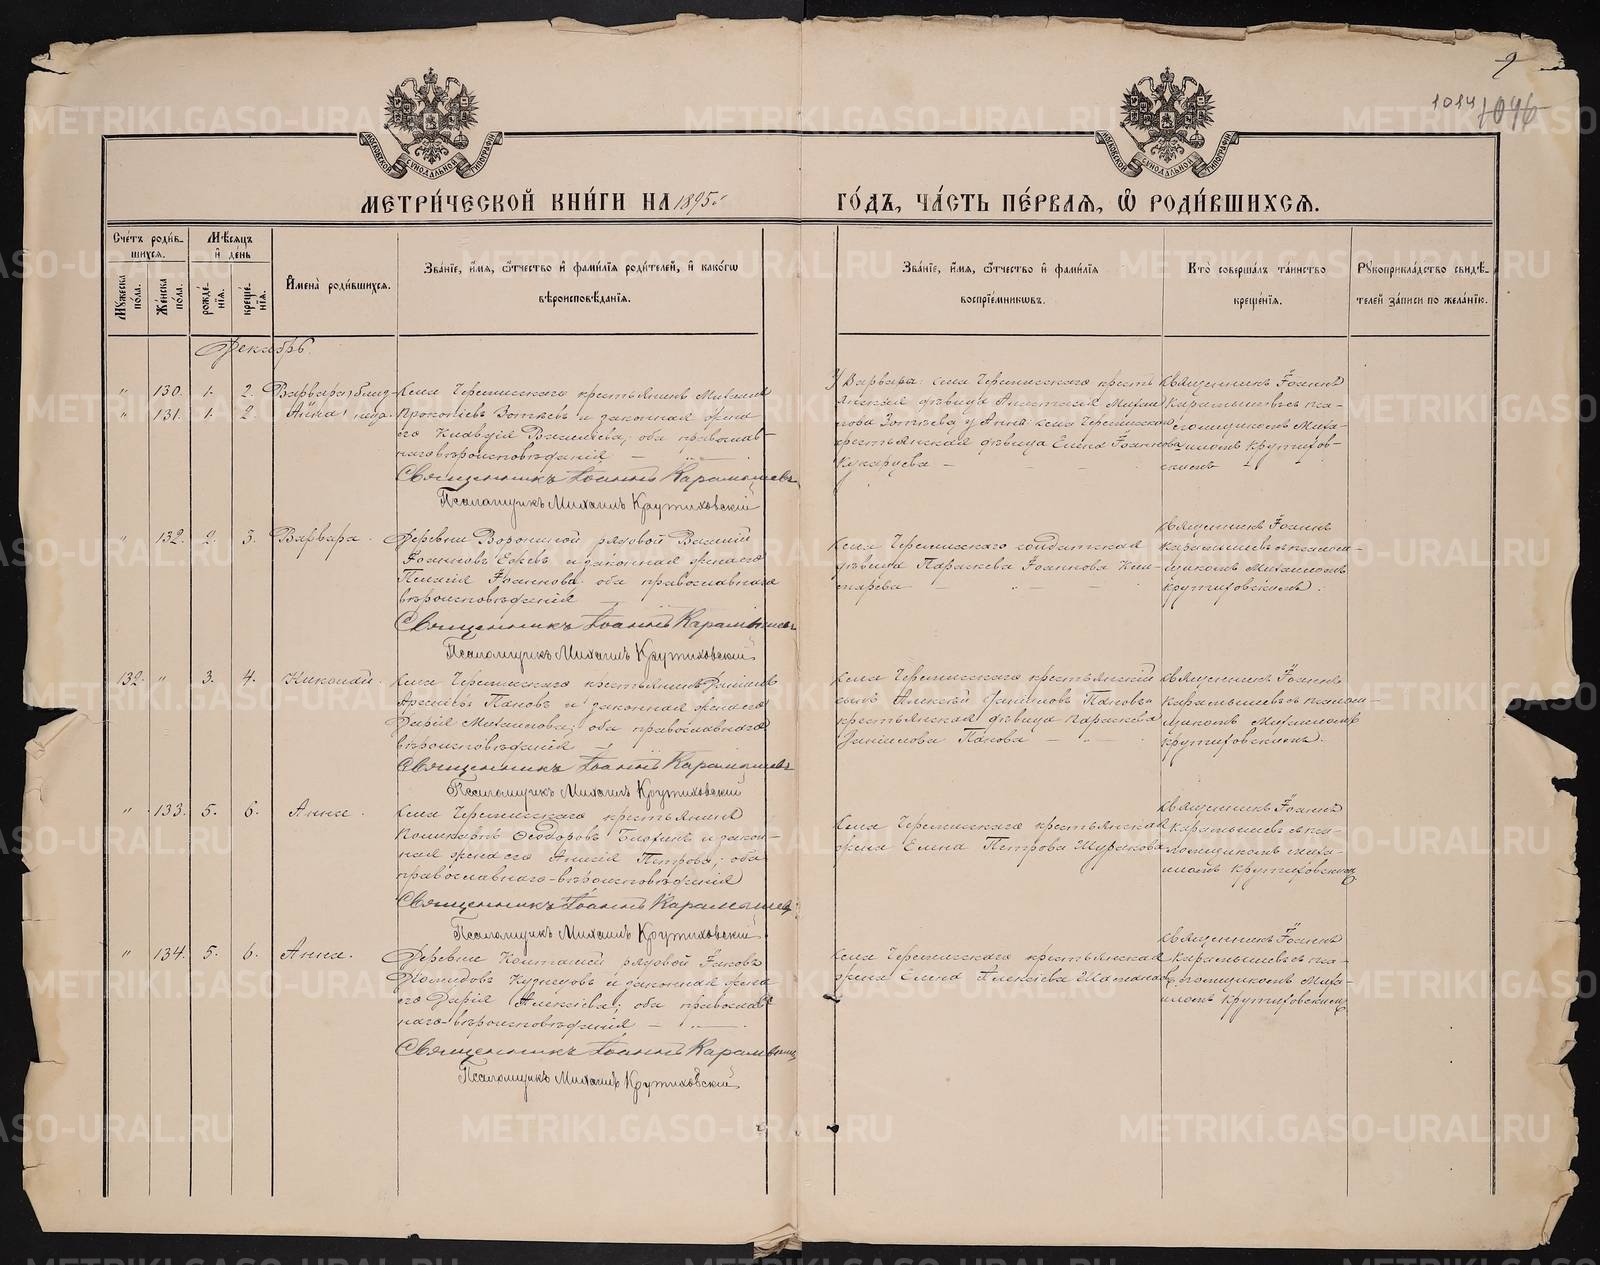 1014 1046
МОСКОВСКОЙ СѴНОДАЛЬНОЙ ТИПОГРАФІИ
МОСКОВСКОЙ СѴНОДАЛЬНОЙ ТИПОГРАФІИ
МЕТРИ́ЧЕСКОЙ КНИ́ГИ НА 1895й ГО́ДЪ, ЧА́СТЬ ПЕ́РВАѦ, Ѽ РОДИ́ВШИХСѦ.
Сче́тъ роди́в-
шихсѧ.
Мꙋ́жеска по́ла.
Же́нска по́ла.
Мѣ́сѧцъ
и҆ де́нь
рожде́-
нїѧ.
креще́-
нїѧ.
И҆мена̀ роди́вшихсѧ.
Зва́нїе, и҆́мѧ, ѻ҆́тчество и҆ фами́лїѧ роди́телей, и҆ како́гѡ
вѣроисповѣ́данїѧ.
Зва́нїе, и҆́мѧ, ѻ҆́тчество и҆ фами́лїѧ
воспрїе́мникѡвъ.
Кто̀ соверша́лъ та́инство
креще́нїѧ.
Рꙋкоприкла́дство свидѣ́-
телей за́писи по жела́нїю.
Декабрь
" 130. 1. 2. Варвара Села Черемисскаго крестьянинъ Михаилъ
" 131. 1. 2. Анна Прокопіевъ Зотѣевъ и законная жена
его Клавдія Васильева, оба православ-
наго вѣроисповѣданія
Священникъ Іоаннъ Карамышевъ
Псаломщикъ Михаилъ Крутиховскій
1) Варвары: села Черемисскаго кресть
янская дѣвица Анастасія Михаи
лова Зотѣева 2) Анна: села Черемисскаго
крестьянская дѣвица Елена Іоаннова
Кукарцева
Священникъ Іоаннъ
Карамышевъ съ пса-
ломщикомъ Миха-
иломъ Крутихов-
скимъ
" 132. 2. 3. Варвара. Деревни Ворониной рядовой Василій
Іоанновъ и законная жена его
Пелагія Іоаннова оба православнаго
вѣроисповѣданія
Священникъ Іоаннъ Карамышевъ
Псаломщикъ Михаилъ Крутиховскій
Села Черемисскаго солдатская
дѣвица Параскева Іоаннова
Священникъ Іоаннъ
Карамышевъ съ псалом-
щикомъ Михаиломъ
Крутиховскимъ.
132. " 3. 4. Николай. Села Черемисскаго крестьянинъ Даніилъ
Арсеніевъ Пановъ и законная жена его
Дарія Михаилова; оба православнаго
вѣроисповѣданія
Священникъ Іоаннъ Карамышевъ
Псаломщикъ Михаилъ Крутиховскій
Села Черемисскаго крестьянскій
сынъ Алексѣй Даніиловъ Пановъ
крестьянская дѣвица Параскева
Даніилова Панова
Священникъ Іоаннъ
Карамышевъ съ псалом-
щикомъ Михаиломъ
Крутиховскимъ.
" 133. 5. 6. Анна. Села Черемисскаго крестьянинъ
Поликарпъ Ѳеодоровъ и закон-
ная жена его Анисія Петрова; оба
православнаго вѣроисповѣданія
Священникъ Іоаннъ Карамышевъ
Псаломщикъ Михаилъ Крутиховскій
Села Черемисскаго крестьянская
жена Елена Петрова Шуракова
Священникъ Іоаннъ
Карамышевъ съ пса-
ломщикомъ Миха-
иломъ Крутиховскимъ
" 134. 5. 6. Анна. Деревни рядовой Іаковъ
Кузнецовъ и законная жена
его Дарія Алексѣева; оба православ-
наго вѣроисповѣданія
Священникъ Іоаннъ Карамышевъ
Псаломщикъ Михаилъ Крутиховскій
Села Черемисскаго крестьянская
жена Елена Алексѣева
Священникъ Іоаннъ
Карамышевъ съ пса-
ломщикомъ Миха-
иломъ Крутиховскимъ
METRIKI.GASO-URAL.RU